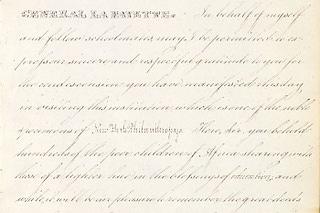 GENERAL LA FAYETTE. In behalf of myself
and fellow schoolmates may I be permitted to ex-
press our sincere and respectful gratitude to you for
the condescension you have manifested this day,
in visiting this institution which is one of the noblest
specimens of New York Philanthropy. Here, Sir, you behold
hundreds of the poor children of Africa sharing with
those of a lighter hue in the blessings of education; and
while it will be our pleasure to remember the great deeds